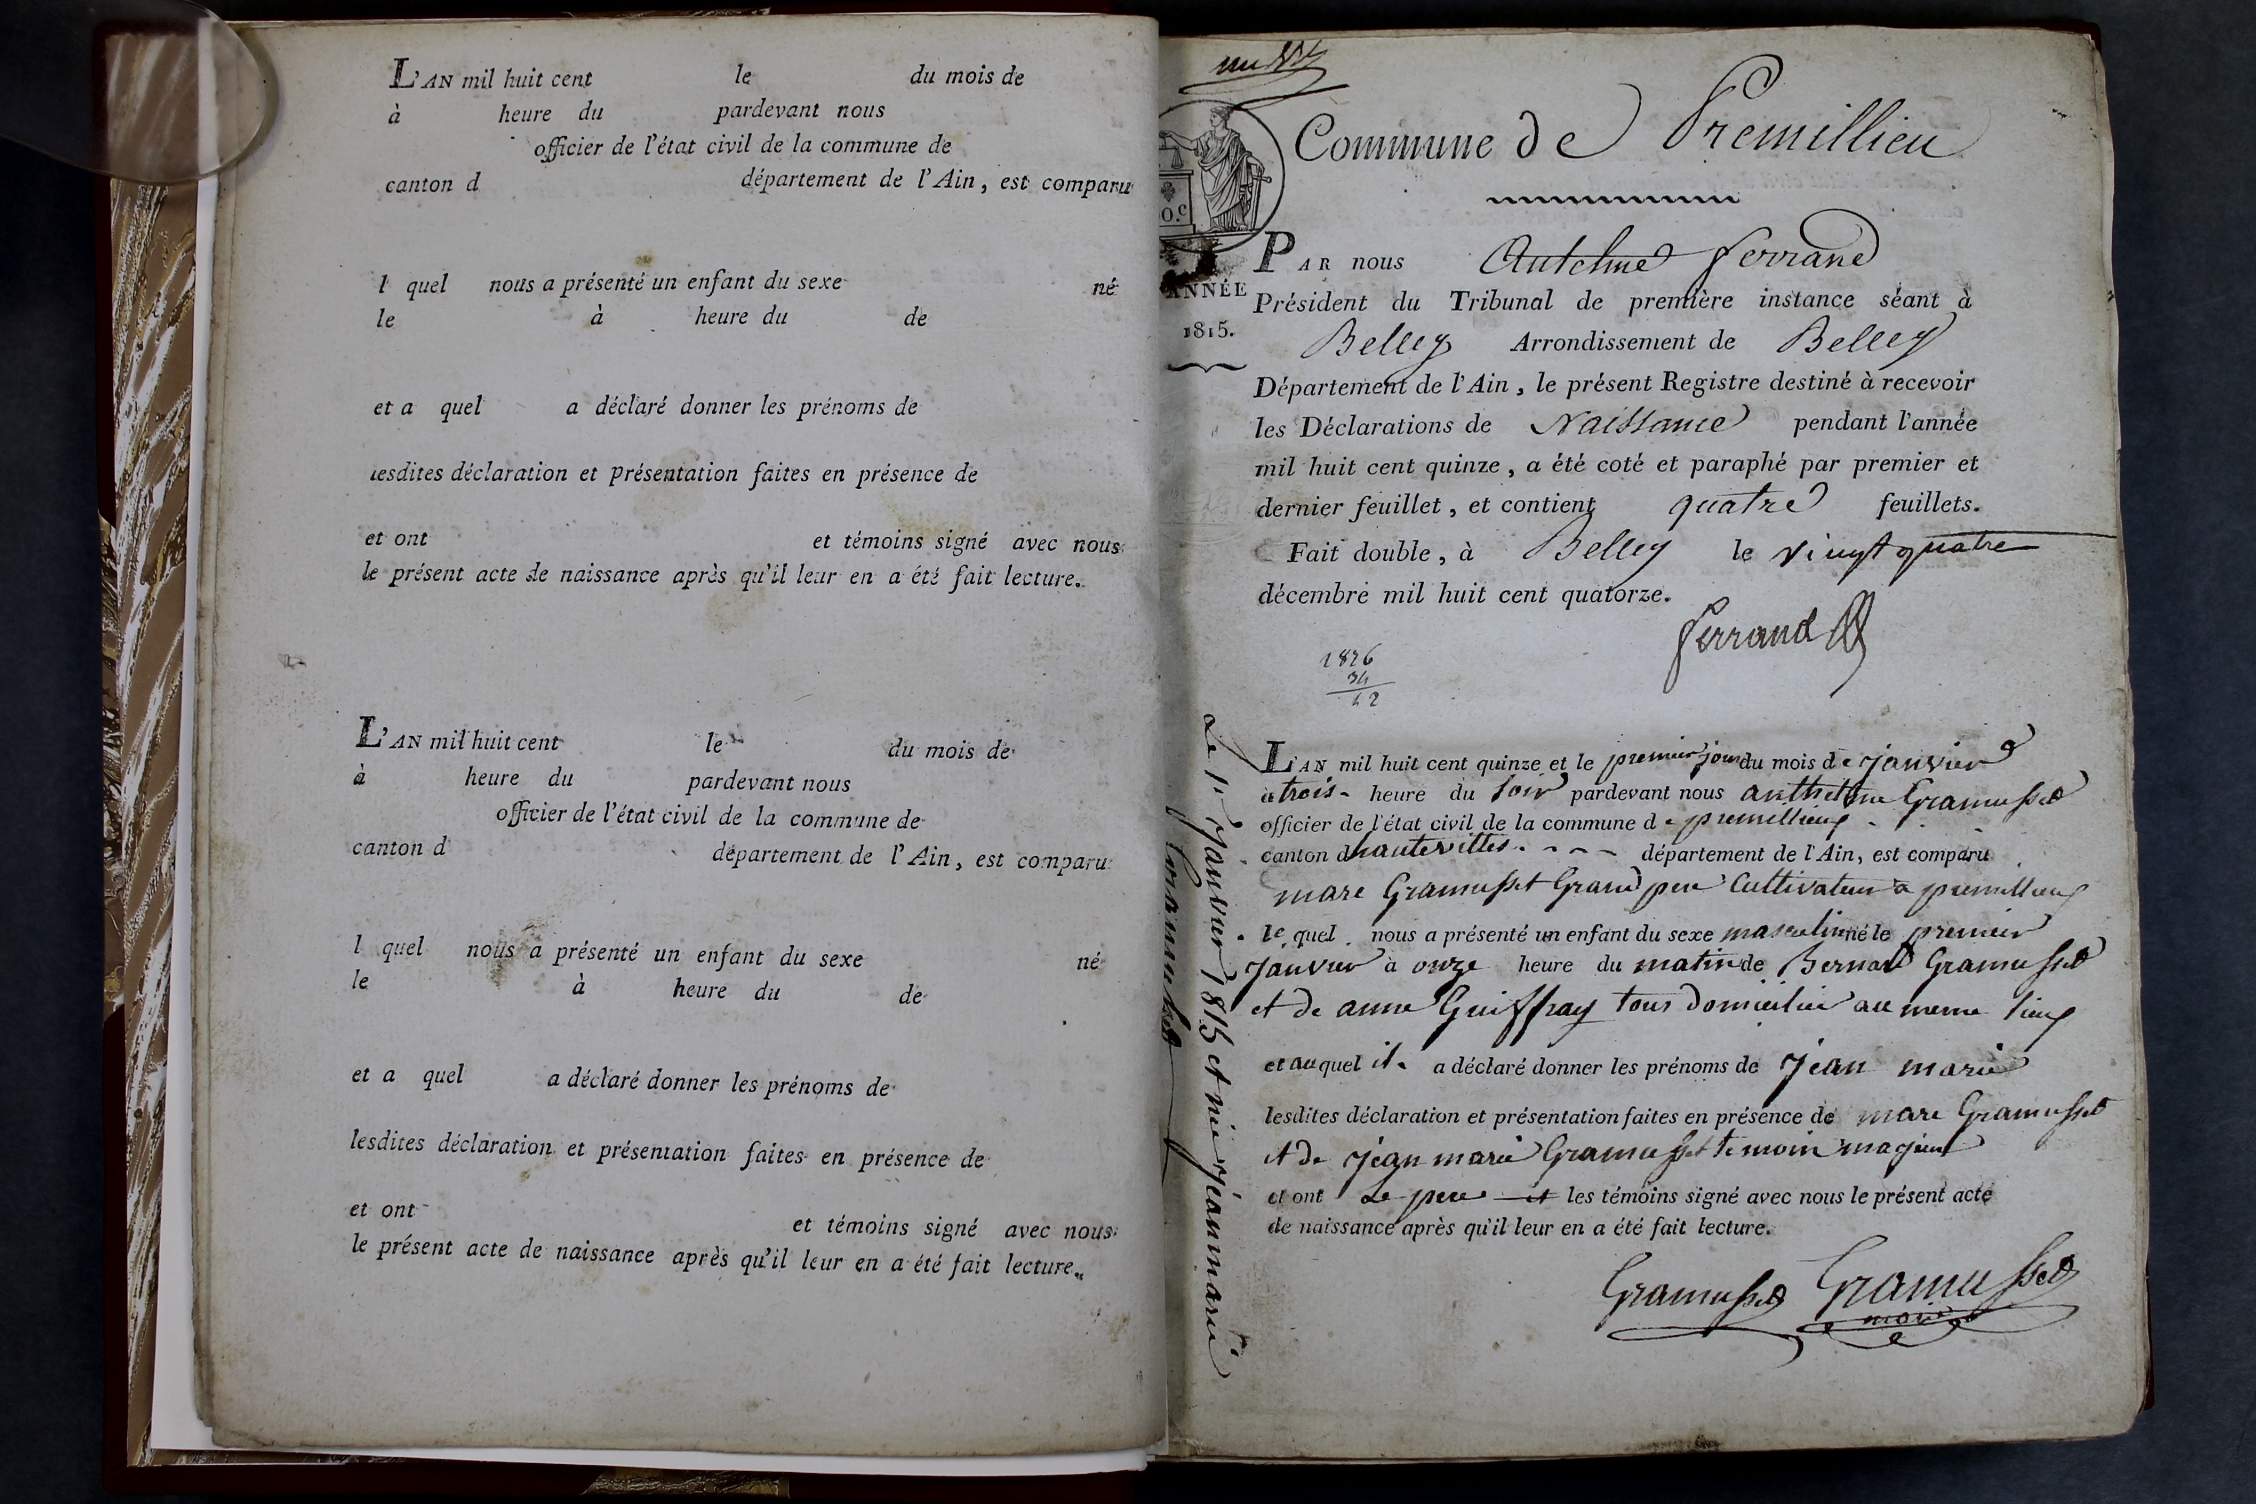 L'AN mil huit cent le du mois de
à heure du pardevant nous
officier de l'état civil de la commune de
canton d département de l'Ain, est comparu
l quel nous a présenté un enfant du sexe né
le à heure du de
et a quel a déclaré donner les prénoms de
lesdites déclaration et présentation faites en présence de
et ont et témoins signé avec nous
le présent acte de naissance après qu'il leur en a été fait lecture.
L'AN mil huit cent le du mois de
à heure du pardevant nous
officier de l'état civil de la commune de
canton d département de l'Ain, est comparu
l quel nous a présenté un enfant du sexe né
le à heure du de
et a quel a déclaré donner les prénoms de
lesdites déclaration et présentation faites en présence de
et ont et témoins signé avec nous
le présent acte de naissance après qu'il leur en a été fait lecture.
Commune de Premillieu
PAR nous Antelme Ferrand
ANNÉE
1815.
Président du Tribunal de première instance séant à
Belley Arrondissement de Belley
Département de l'Ain, le présent Registre destiné à recevoir
les Déclarations de Naissance pendant l'année
mil huit cent quinze, a été coté et paraphé par premier et
dernier feuillet, et contient quatre feuillets.
Fait double, à Belley le vingt quatre
décembre mil huit cent quatorze.
Ferrand
1826
34
42
L'AN mil huit cent quinze et le premier jour du mois de janvier
à trois heure du soir pardevant nous anthelme Gramusset
officier de l'état civil de la commune de premillieux
canton d hauteville département de l'Ain, est comparu
marc Gramusset Grand pere Cultivateur a premillieux
le quel nous a présenté un enfant du sexe masculin né le premier
Janvier à onze heure du matin de Bernard Gramusset
et de anne Guiffray tous domicilié au meme lieux
et auquel il a déclaré donner les prénoms de jean marie
lesdites déclaration et présentation faites en présence de marc Gramusset
et de jean marie Gramusset temoin majeur
et ont Le pere et les témoins signé avec nous le présent acte
de naissance après qu'il leur en a été fait lecture.
Gramusset Gramusset
maire
Le 1er Janvier 1815 et née jeanmarie
Gramusset